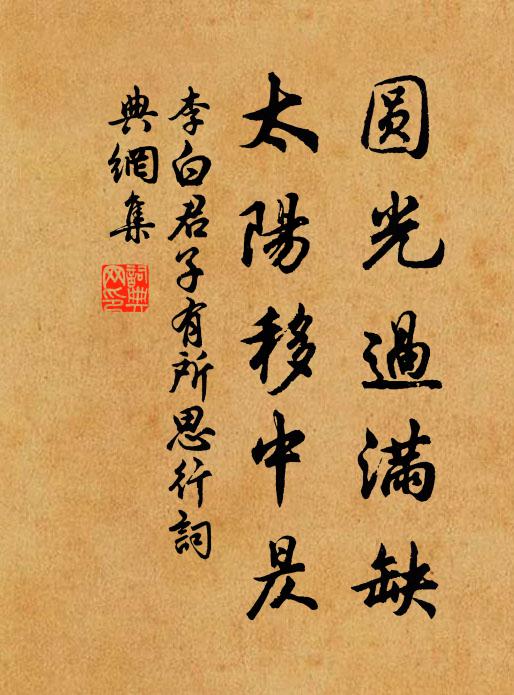 圆光過满缺
太陽移中昃
李白君子有所思行詞
典網集
詞典网印